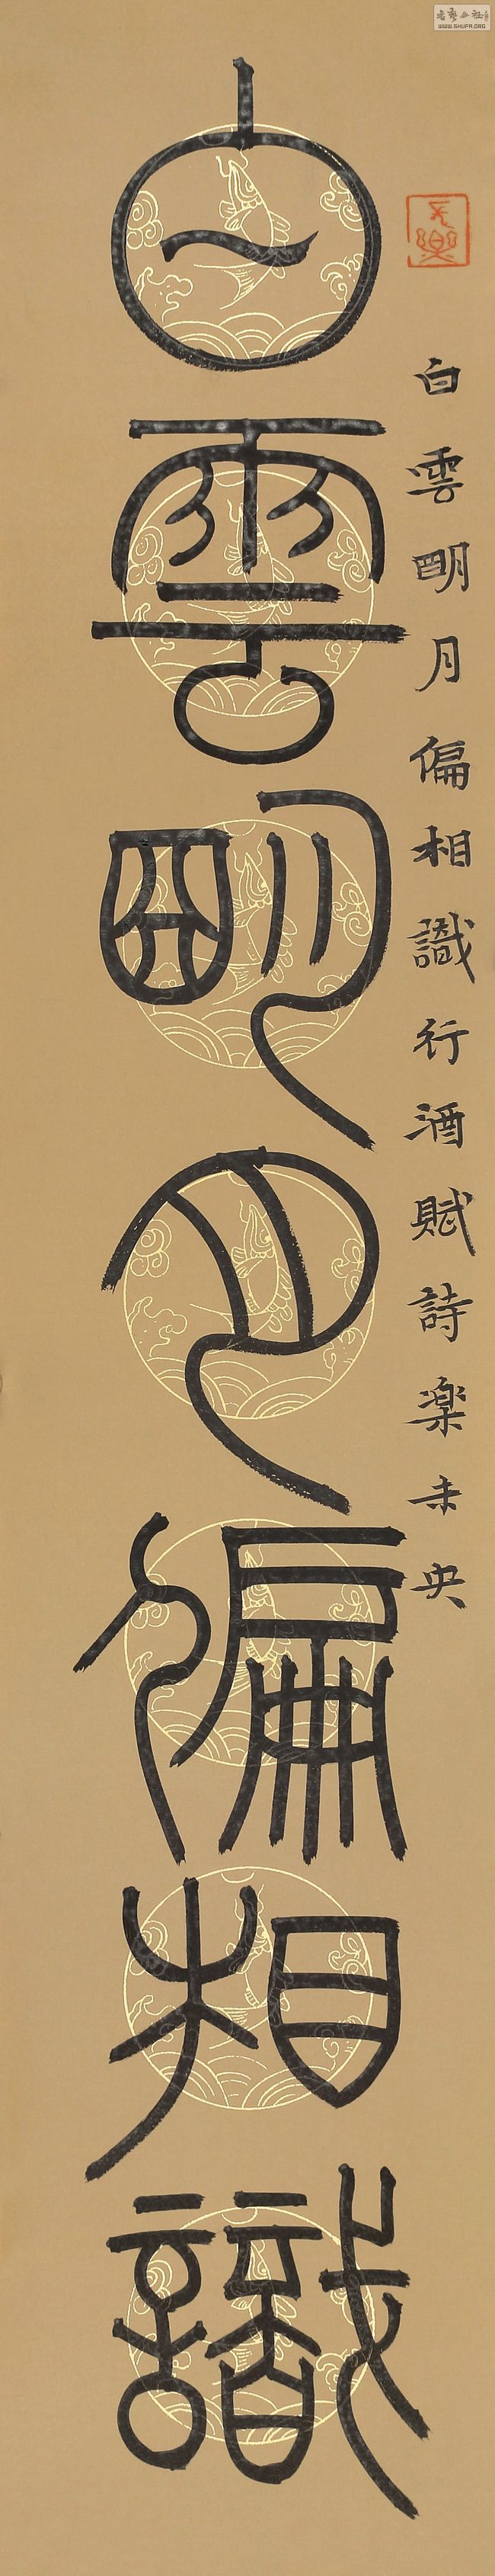 白雲明月偏相識
白雲明月偏相識行酒賦詩楽未央
WWW.SHUFA.ORG